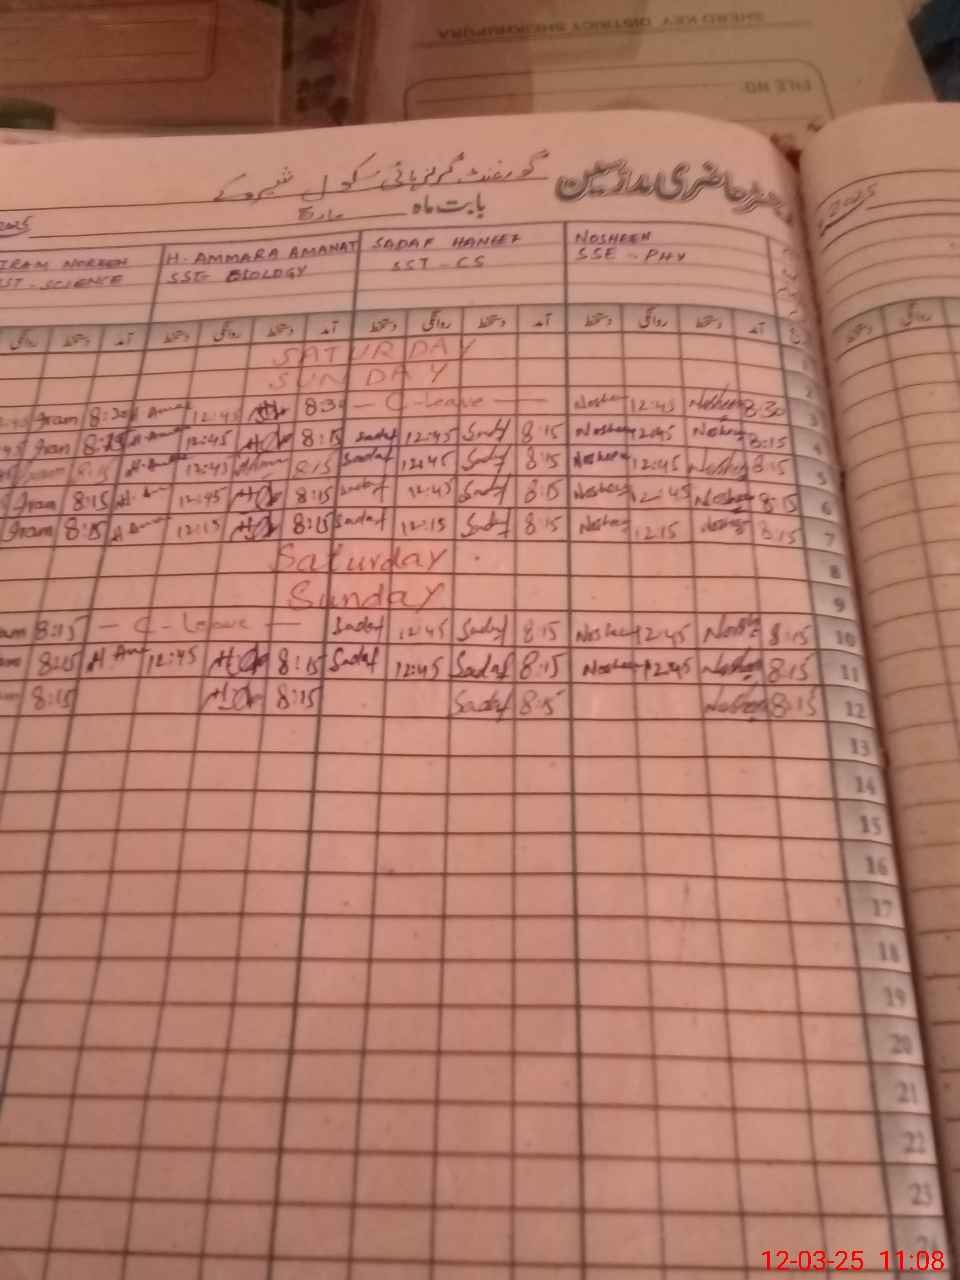 SHERO KEY DISTRICT SHEIKHUPURA
FILE NO.
گورنمنٹ گرلز ہائی سکول شیروکے
بابت ماہ مارچ
2025
2025
IRAM NOREEN H. AMMARA AMANAT SADAF HANEEF NOSHEEN
SST-SCIENCE SST BIOLOGY SST-CS SSE-PHY
روانگی دستخط آمد دستخط روانگی دستخط آمد دستخط روانگی دستخط آمد دستخط روانگی دستخط آمد دستخط روانگی
SATURDAY 1
SUNDAY 2
Iram 8:30 12:45 8:30 - C-leave - 12:45 Nosheen 8:30 3
Iram 8:15 12:45 8:15 Sadaf 12:45 Sadaf 8:15 Nosheen 12:45 Nosheen 8:15 4
Iram 8:15 12:45 8:15 Sadaf 12:45 Sadaf 8:15 Nosheen 12:45 Nosheen 8:15 5
Iram 8:15 12:45 8:15 Sadaf 12:45 Sadaf 8:15 Nosheen 12:45 Nosheen 8:15 6
Iram 8:15 12:15 8:15 Sadaf 12:15 Sadaf 8:15 12:15 8:15 7
Saturday 8
Sunday 9
8:15 - C-Leave - Sadaf 12:45 Sadaf 8:15 Nosheen 12:45 8:15 10
8:15 12:45 8:15 Sadaf 12:45 Sadaf 8:15 Nosheen 12:45 Nosheen 8:15 11
8:15 8:15 Sadaf 8:15 Nosheen 8:15 12
13
14
15
16
17
18
19
20
21
22
23
24
12-03-25 11:08